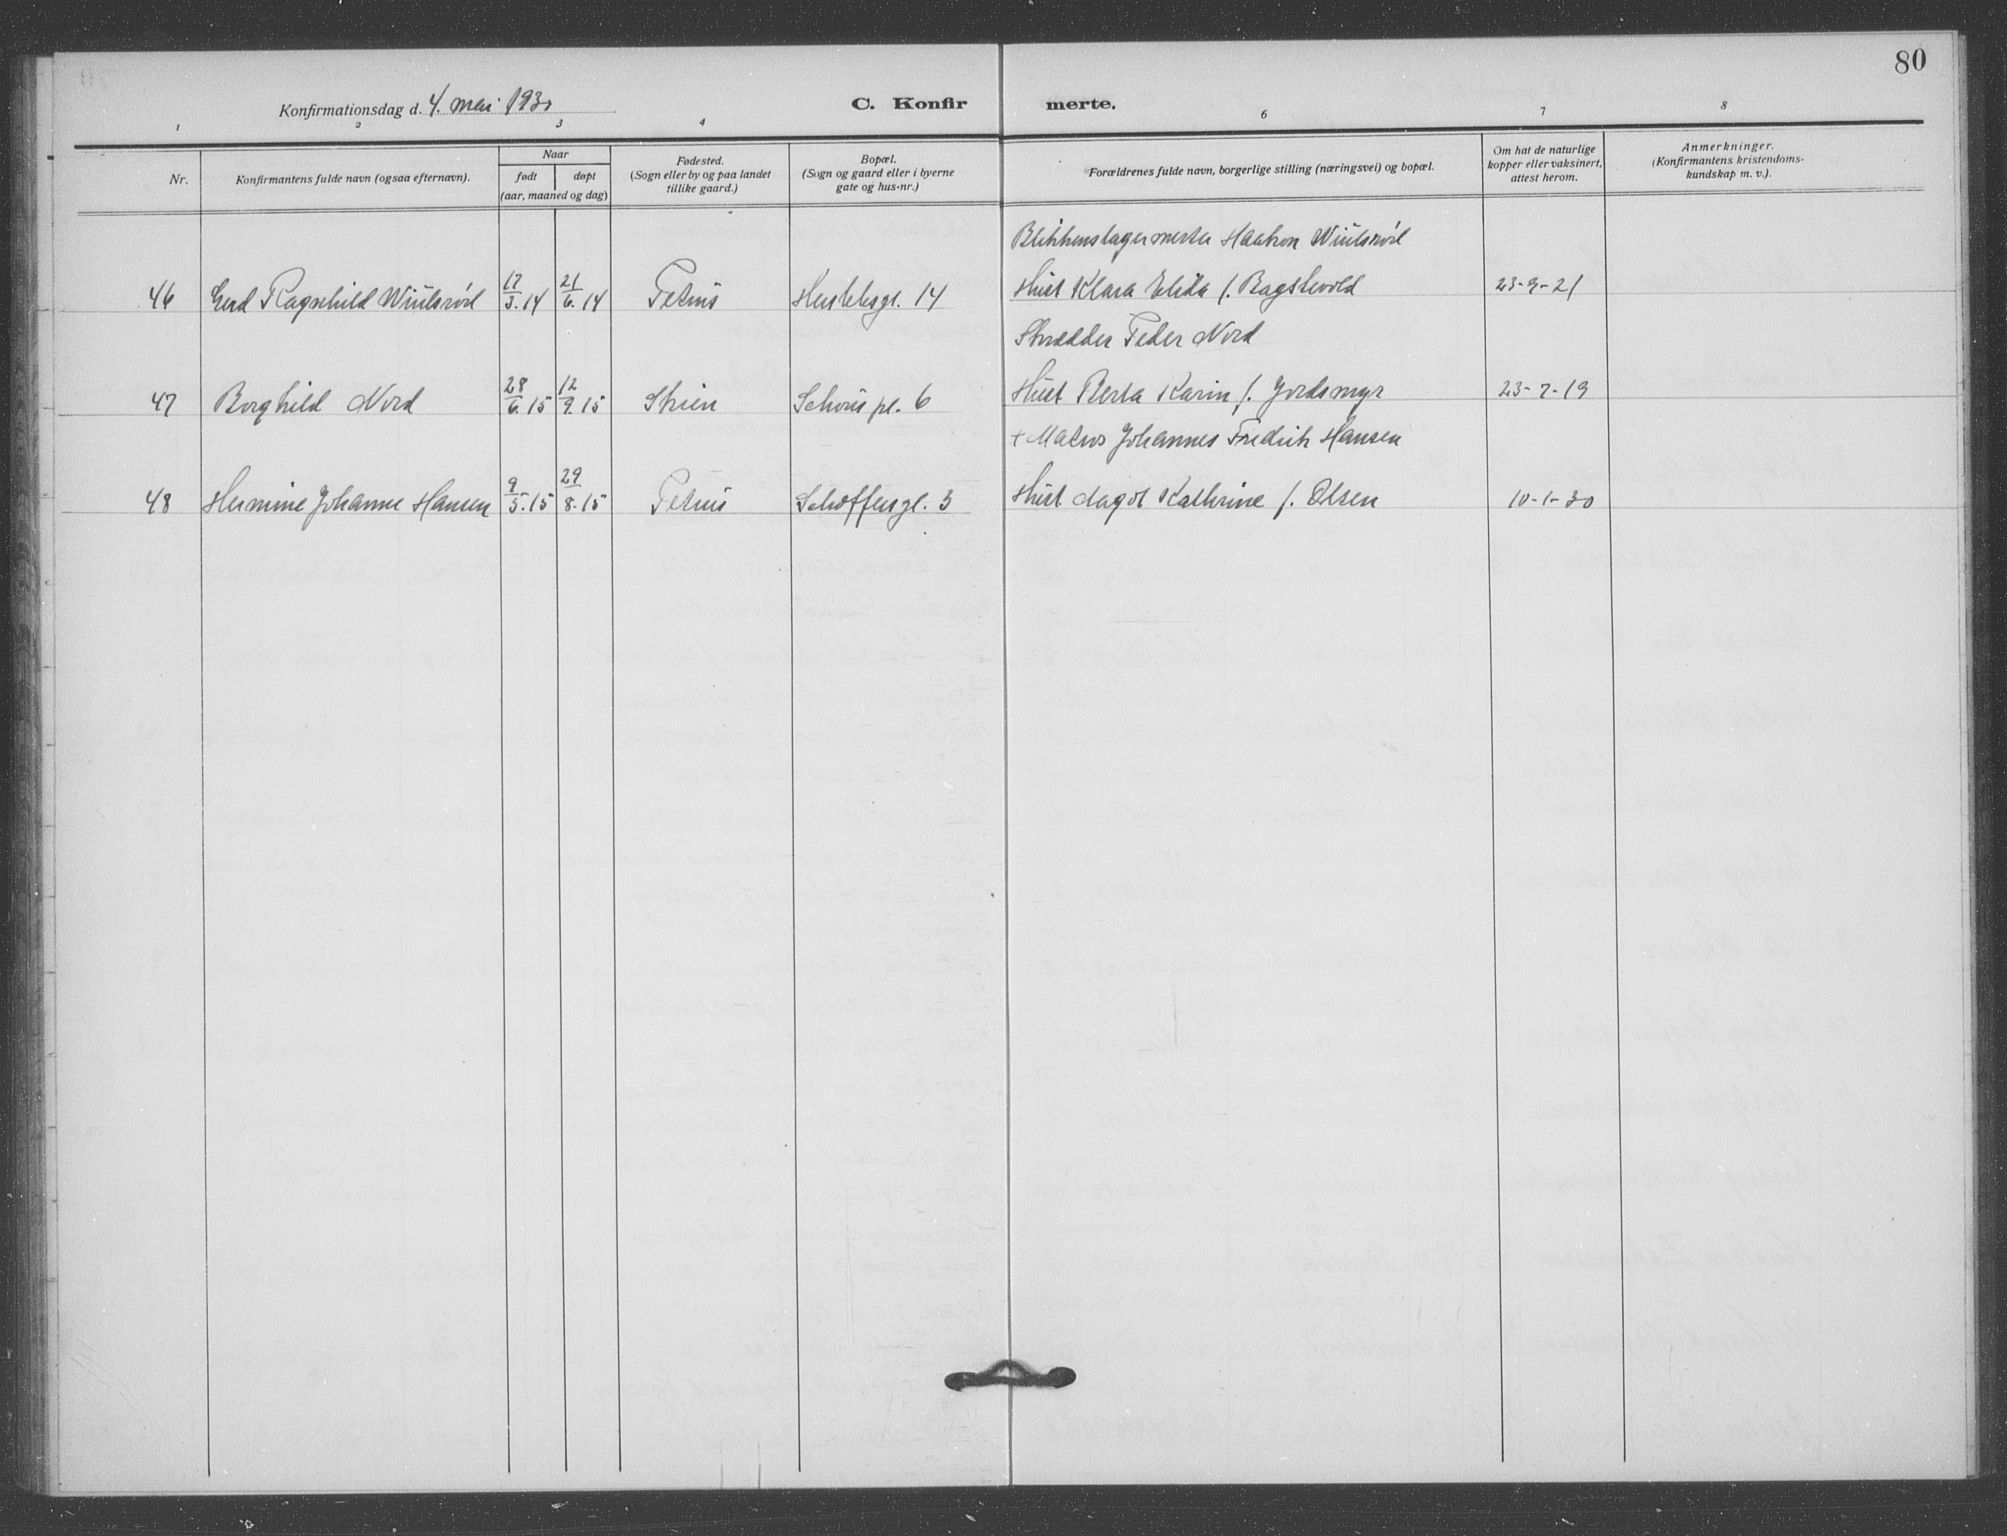 80
Konfirmationsdag d. 4. mai 1930
C. Konfir merte.
1 2 3 4 6 7 8
Nr.
Konfirmantens fulde navn (ogsaa efternavn).
Naar
født døpt
(aar, maaned og dag)
Fødested.
(Sogn eller by og paa landet
tillike gaard.)
Bopæl.
(Sogn og gaard eller i byerne
gate og hus-nr.)
Forældrenes fulde navn, borgerlige stilling (næringsvei) og bopæl.
Om hat de naturlige
kopper eller vaksinert,
attest herom.
Anmerkninger.
(Konfirmantens kristendoms-
kundskap m. v.).
Blikkenslagermester Haakon Wiulsrød
46 Gerd Ragnhild Wiulsrød 17/3.14 21/6.14 Petrus 14 Hust Klara Elida f. 23-9-21
Skrædder Peder Nord
47 Borghild Nord 28/6.15 12/9.15 Skien Schous pl. 6 Hust Berta Karin f. Jordsmyr 23-7-19
+ Matros Johannes Fredrik Hansen
48 Hermine Johanne Hansen 9/5.15 29/8.15 Petrus 3 Hust. Dagot Kathrine f. Olsen 10-1-30